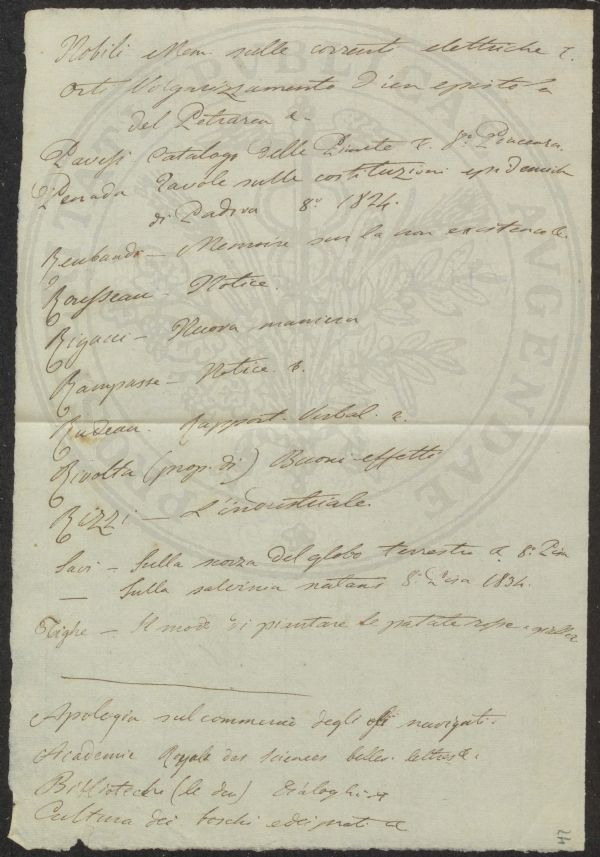 Nobili Mem. sulle correnti elettriche &.
Orti Volgarizzamento d'un epistola
del Petrarca &.
Pavesi Catalogo delle Piante &. 8º Piacenza.
Penada Tavole sulle costituzioni epidemiche
di Padova 8º 1824.
Reubando – Memoire sur la non existence &.
Rousseau – Notice.
Rigacci – Nuova maniera
Rampasse – Notice &.
Rudeau. Rapport Verbal &.
Rivolta (prop. di) Buoni effetti
Rizzi – L'industriale.
Savi – Sulla scorza del globo terrestre &. 8º Pisa
— Sulla salvinia natans 8º Pisa 1834.
Tighe – Il modo di piantare le patate rosse e gialle
Apologia sul commercio degli navigati.
Academie Royale des Sciences belles lettres &.
Biblioteche (le due) Dialoghi &
Cultura dei boschi e dei prati &